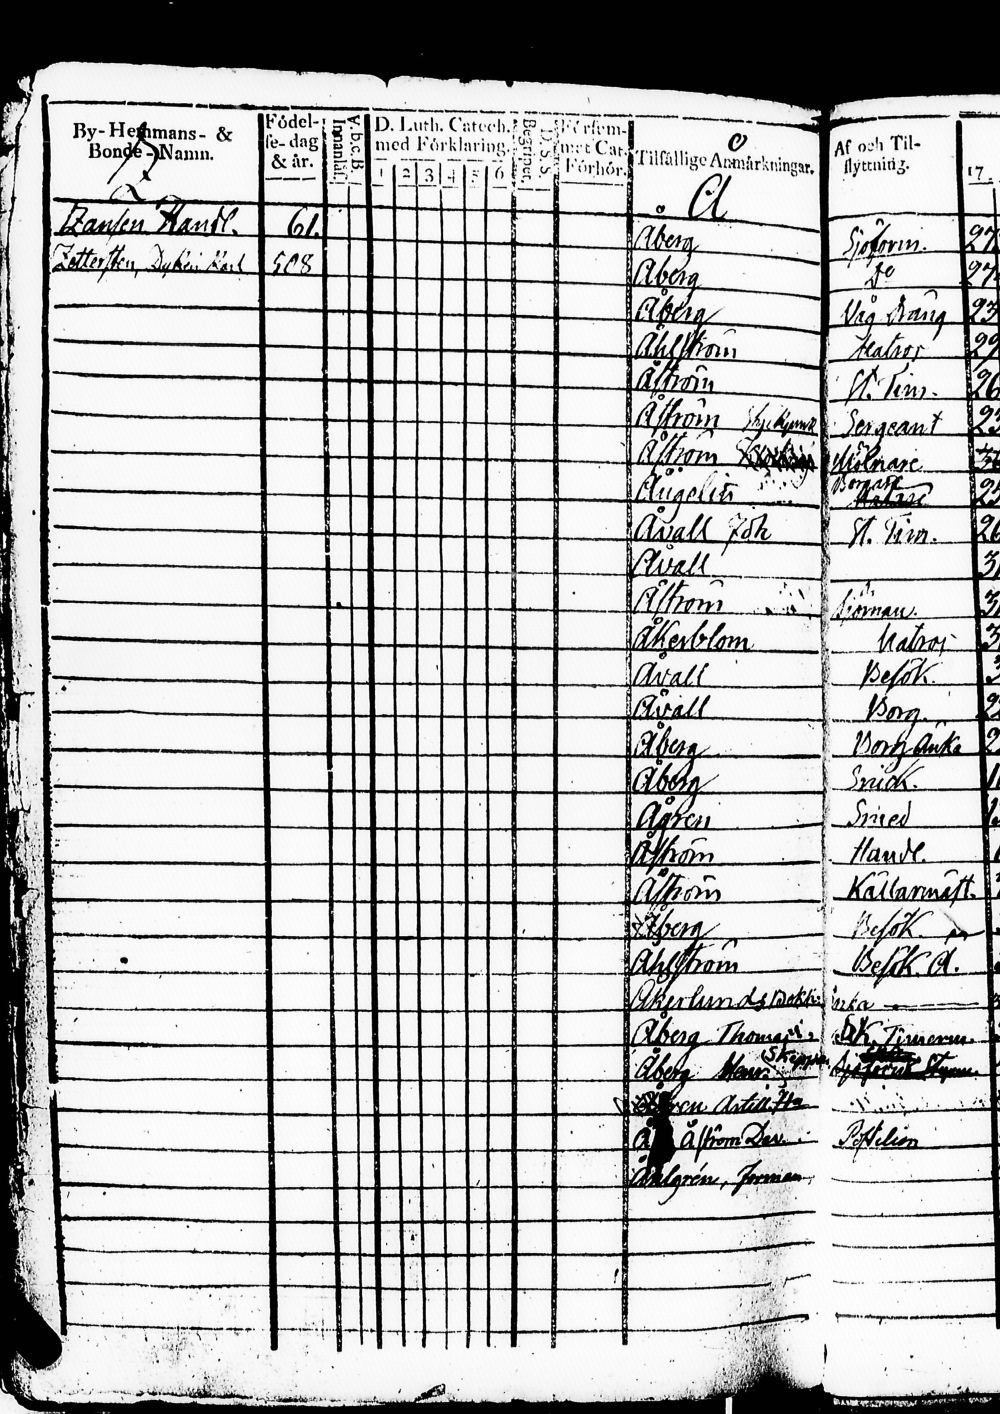 By- Hemmans- & Bonde- Namn.
Födel-se-dag & år.
Innanläs.
A.b.c.B.
D. Luth. Catech. med Förklaring.
1 2 3 4 5 6
Begriper.
D.S.S.
Förfum-met Cat. Förhör.
Tilfällige Anmärkningar.
Af och Til-flyttning.
17
Z
Å
Handl. 61.
Zettersten, 508
Åberg Sjöform. 27
Åberg Do 27
Åberg Våg 23
Åhlström Matros 29
Åström St. Tim. 26
Åström Sergeant 23
Åström Mölnare
Ångelin Borgare
Åvall Joh St. Tim. 26
Åvall
Åström Sjöman.
Åkerblom Matros
Åvall Besök.
Åvall Borg.
Åberg Borg Änka
Åberg Snick.
Ågren Smed
Åström Handl.
Åström Källarmäst.
Åberg Besök
Åhlström Besök. Å.
Åkerlunds
Åberg Thomas Sk. Timerm.
Åberg Henr. Skeppar
Åström Dav. Postilion
Åhlgrén, Forman